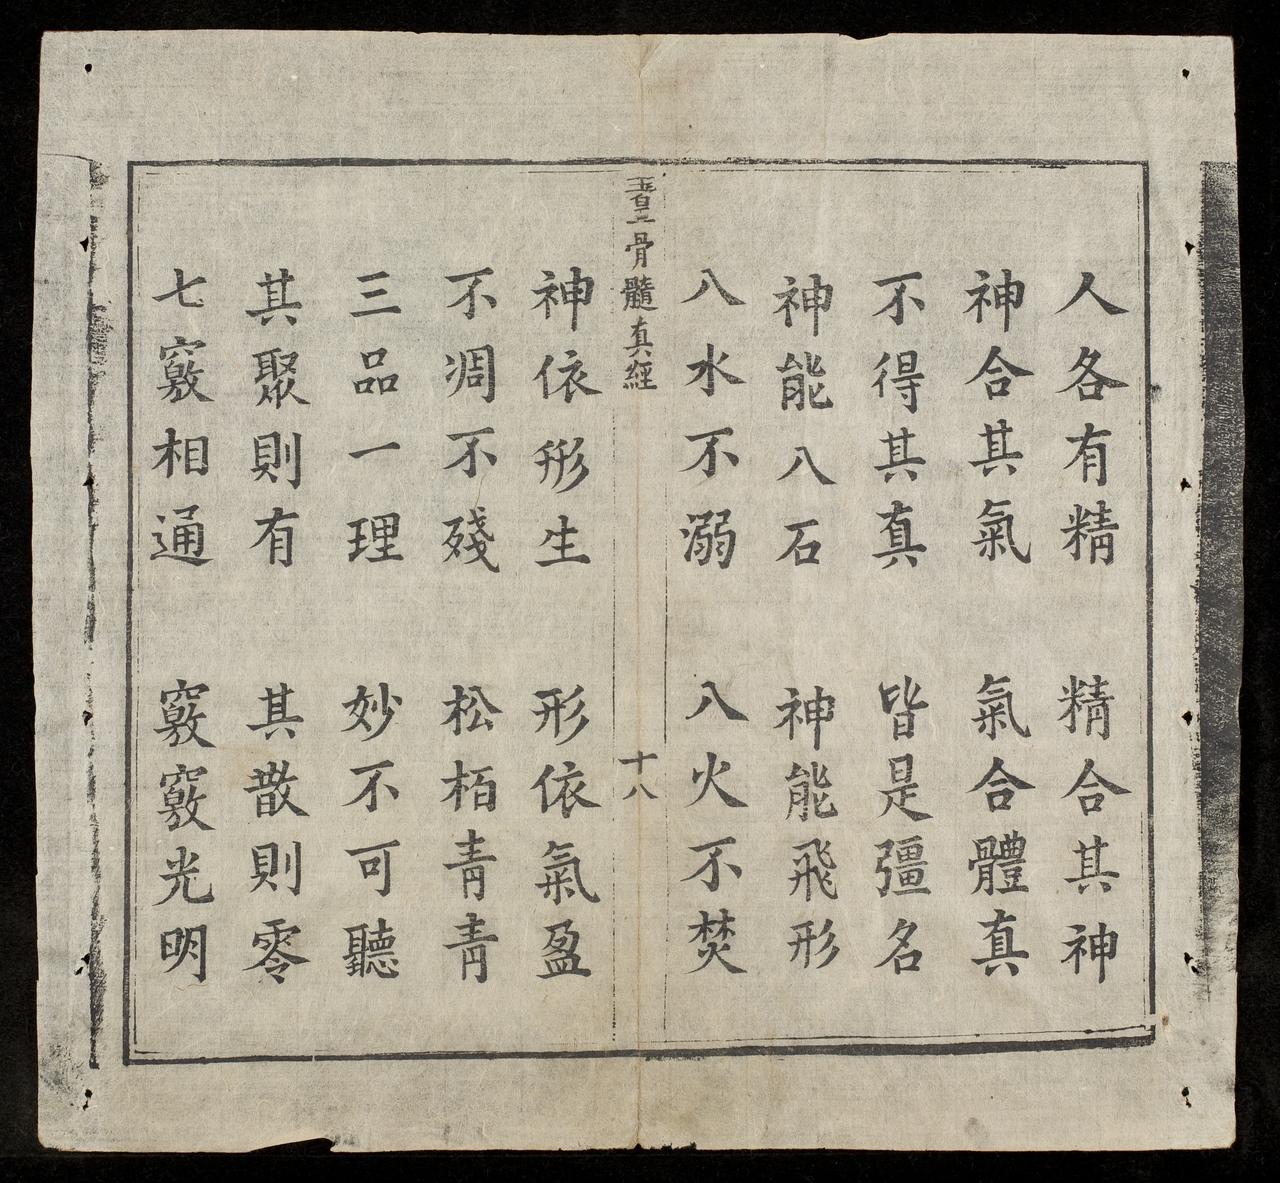 人各有精　精合其神
神合其氣　氣合體真
不得其真　皆是彊名
神能八石　神能飛形
八水不溺　八火不焚
玉皇骨髓真經　十八
神依形生　形依氣盈
不凋不殘　松栢青青
三品一理　妙不可聽
其聚則有　其散則零
七竅相通　竅竅光明